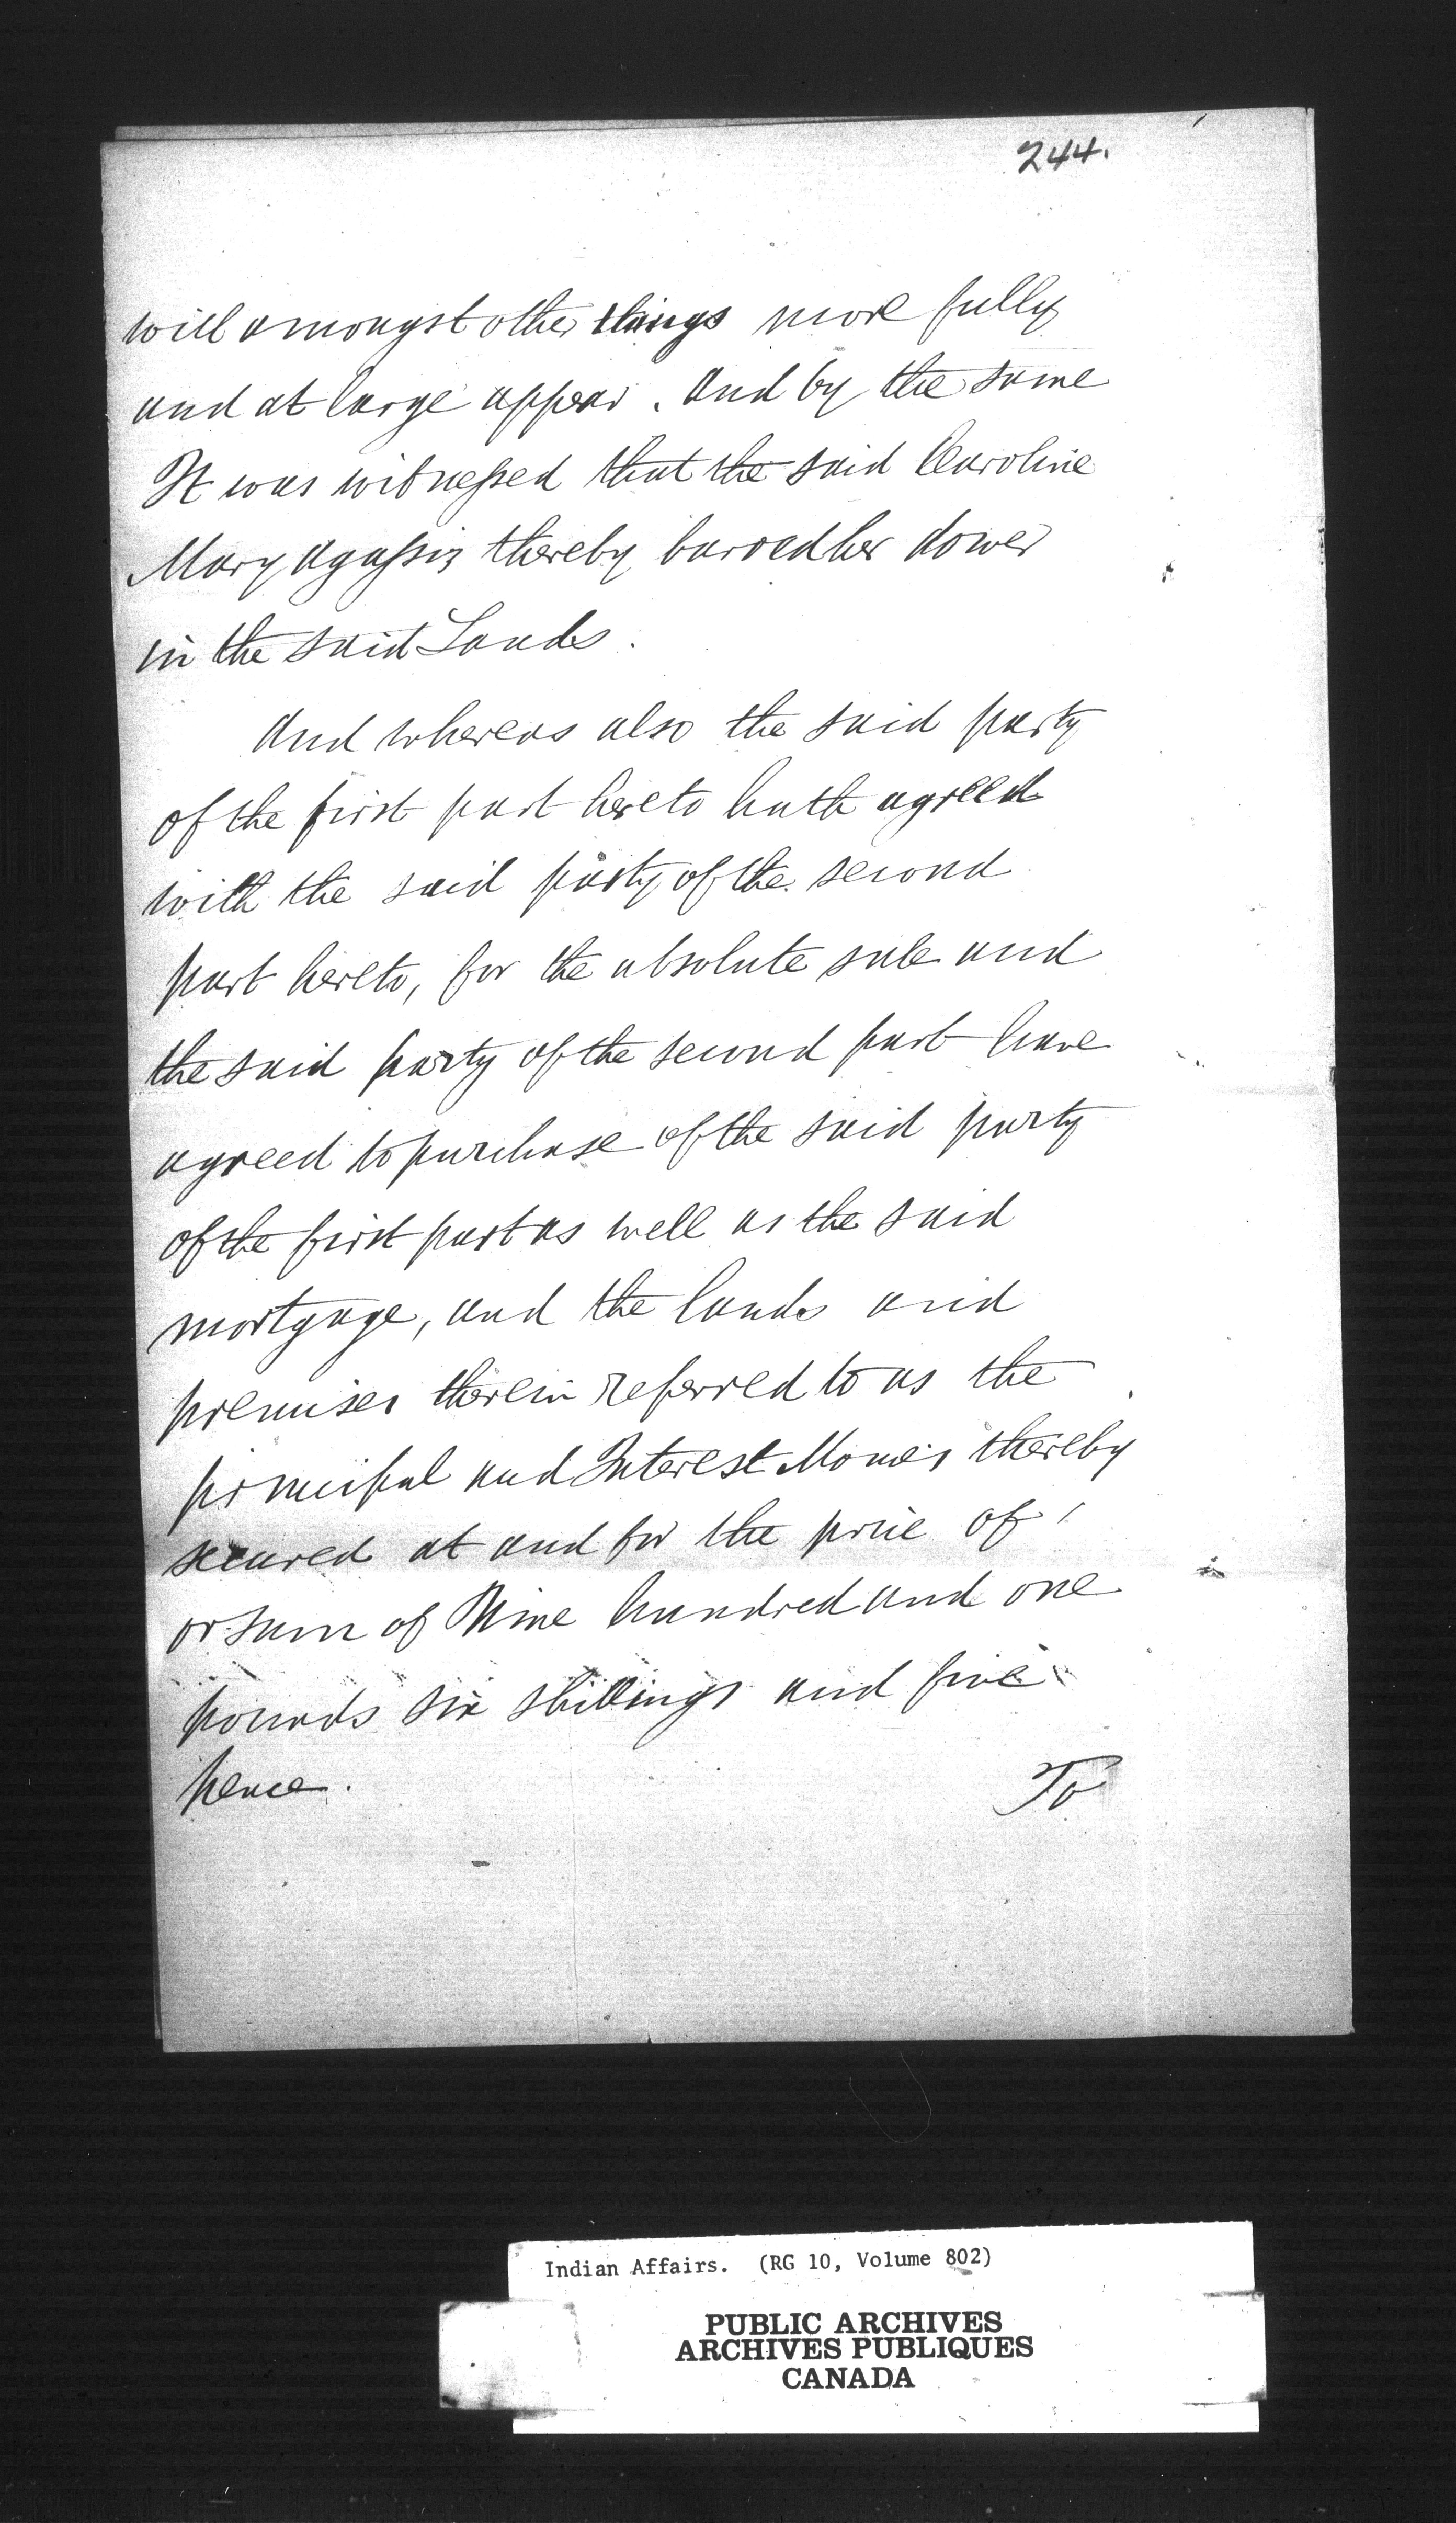 244.
will amongst other things more fully
and at large appear. And by the same
It was witnessed that the said Caroline
Mary Agassiz thereby barred her dower
in the said Lands.
And whereas also the said party
of the first part hereto hath agreed
with the said party of the second
part hereto, for the absolute sale and
the said party of the second part have
agreed to purchase of the said party
of the first part as well as the said
mortgage, and the lands and
premises therein referred to as the
principal and Interest Monies thereby
secured at and for the price of
or sum of Nine hundred and one
pounds six shillings and five
pence.
To
Indian Affairs. (RG 10, Volume 802)
PUBLIC ARCHIVES
ARCHIVES PUBLIQUES
CANADA